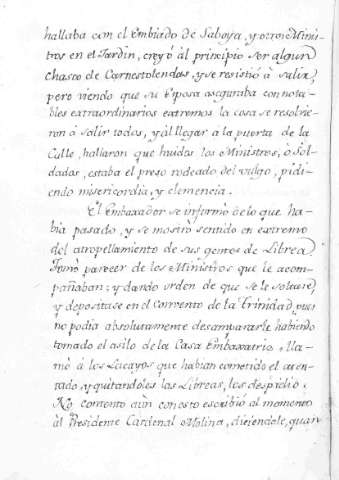 hallaba con el Embiado de Saboya, y otros Minis-
tros en el Jardin, creyó àl principio ser algun
chasco de Carnestolendas, y se resistió à salir,
pero viendo que su Esposa aseguraba con nota-
bles extraordinarios extremos la cosa se resolvie-
ron à salir todos, y àl llegar a la puerta de la
Calle, hallaron que huidos los Ministros, ò Sol-
dados, estaba el preso rodeado del vulgo, pidi-
endo misericordia, y clemencia.
El Embaxador se informò de lo que ha-
bia pasado, y se mostrò sentido en extremo
del atropellamiento de sus gentes de Librea,
Tomò parecer de los Ministros que le acom-
pañaban; y dando orden de que se le soltase,
y depositase en el Convento de la Trinidad, pues
no podia absolutamente desampararle habiendo
tomado el asilo de la Casa Embaxatriz, lla-
mò à los Lacayos que habian cometido el aten-
tado, y quitandoles las Libreas, los despidiò.
No contento aùn con esto escribiò al momento
àl Presidente Cardenal Molina, diciendole, quan